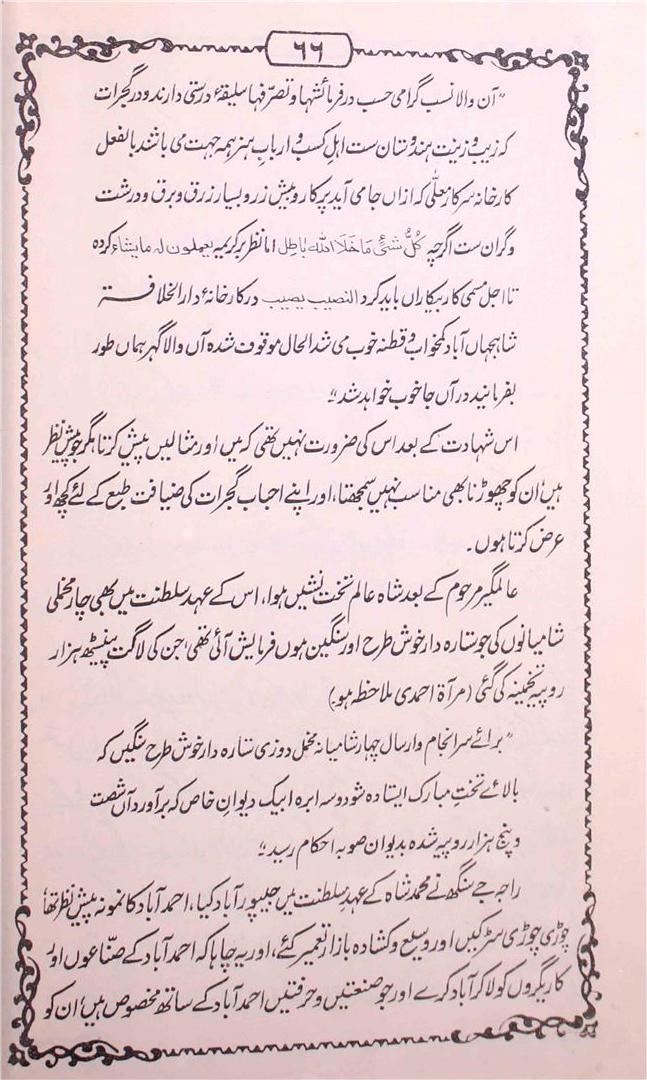 ۶۶
"آن والا نسب گرامی حسب در فرمائشها و تصرفها سلیقۂ درستی دارند و در گجرات
کہ زیب و زینت ہندوستان ست اہلِ کسب و اربابِ ہنر ہمہ جہت می باشند بالفعل
کارخانہ سرکار معلّٰی کہ ازاں جا می آید پرکار و بیش زر و بسیار زرق و برق و درشت
و گران ست اگرچہ كُلُّ شَئٍ مَا خَلَا اللّٰه بَاطِل اما نظر بر کریمہ یعملون لہ مایشاء کردہ
تا اجل مسمی کار بیکاراں باید کرد النصیب یصیب در کارخانۂ دارالخلافۃ
شاہجہاں آباد کمخواب و قطنہ خوب می شد الحال موقوف شدہ آں والا گہر ہماں طور
بفرمایند در آں جا خوب خواہد شد"
اس شہادت کے بعد اس کی ضرورت نہیں تھی کہ میں اور مثالیں پیش کرتا مگر جو پیش نظر
ہیں اُن کو چھوڑنا بھی مناسب نہیں سمجھتا، اور اپنے احباب گجرات کی ضیافت طبع کے لئے کچھ اور
عرض کرتا ہوں۔
عالمگیر مرحوم کے بعد شاہ عالم تخت نشیں ہوا، اس کے عہد سلطنت میں بھی چار مخملی
شامیانوں کی جو ستارہ دار خوش طرح اور سنگین ہوں فرمایش آئی تھی، جن کی لاگت پینسٹھ ہزار
روپیہ تخمینہ کی گئی (مرآۃ احمدی ملاحظہ ہو)
"برائے سرانجام و ارسال چہار شامیانہ مخمل دوزی ستارہ دار خوش طرح سنگیں کہ
بالائے تخت مبارک ایستادہ شود و سہ ابرہ ایبک دیوانِ خاص کہ برآورد آں شصت
و پنج ہزار روپیہ شدہ بدیوان صوبہ احکام رسید"
راجہ جے سنگھ نے محمد شاہ کے عہدِ سلطنت میں جیپور آباد کیا، احمد آباد کا نمونہ پیش نظر تھا
چوڑی چوڑی سڑکیں اور وسیع و کشادہ بازار تعمیر کئے، اور یہ چاہا کہ احمد آباد کے صنّاعوں اور
کاریگروں کو لا کر آباد کرے اور جو صنعتیں و حرفتیں احمد آباد کے ساتھ مخصوص ہیں، اُن کو